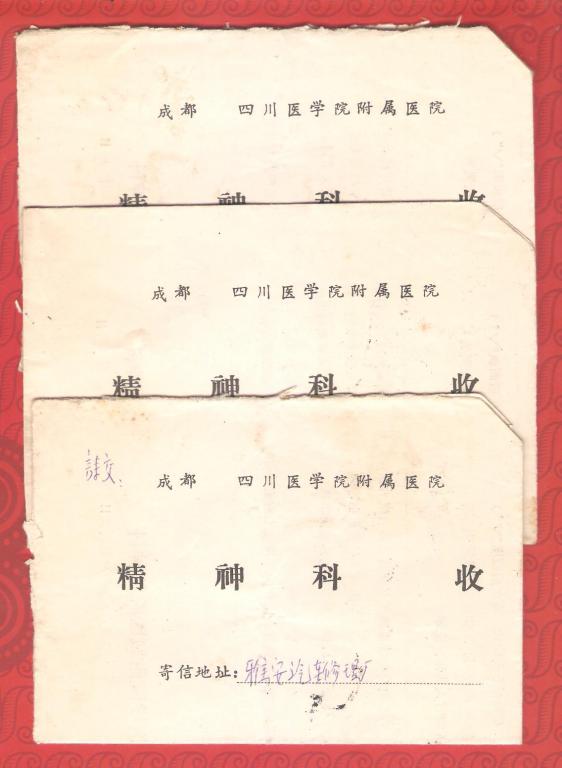 成都 四川医学院附属医院
精 神 科 收
成都 四川医学院附属医院
精 神 科 收
请交: 成都 四川医学院附属医院
精 神 科 收
寄信地址: 雅安汽车修理厂